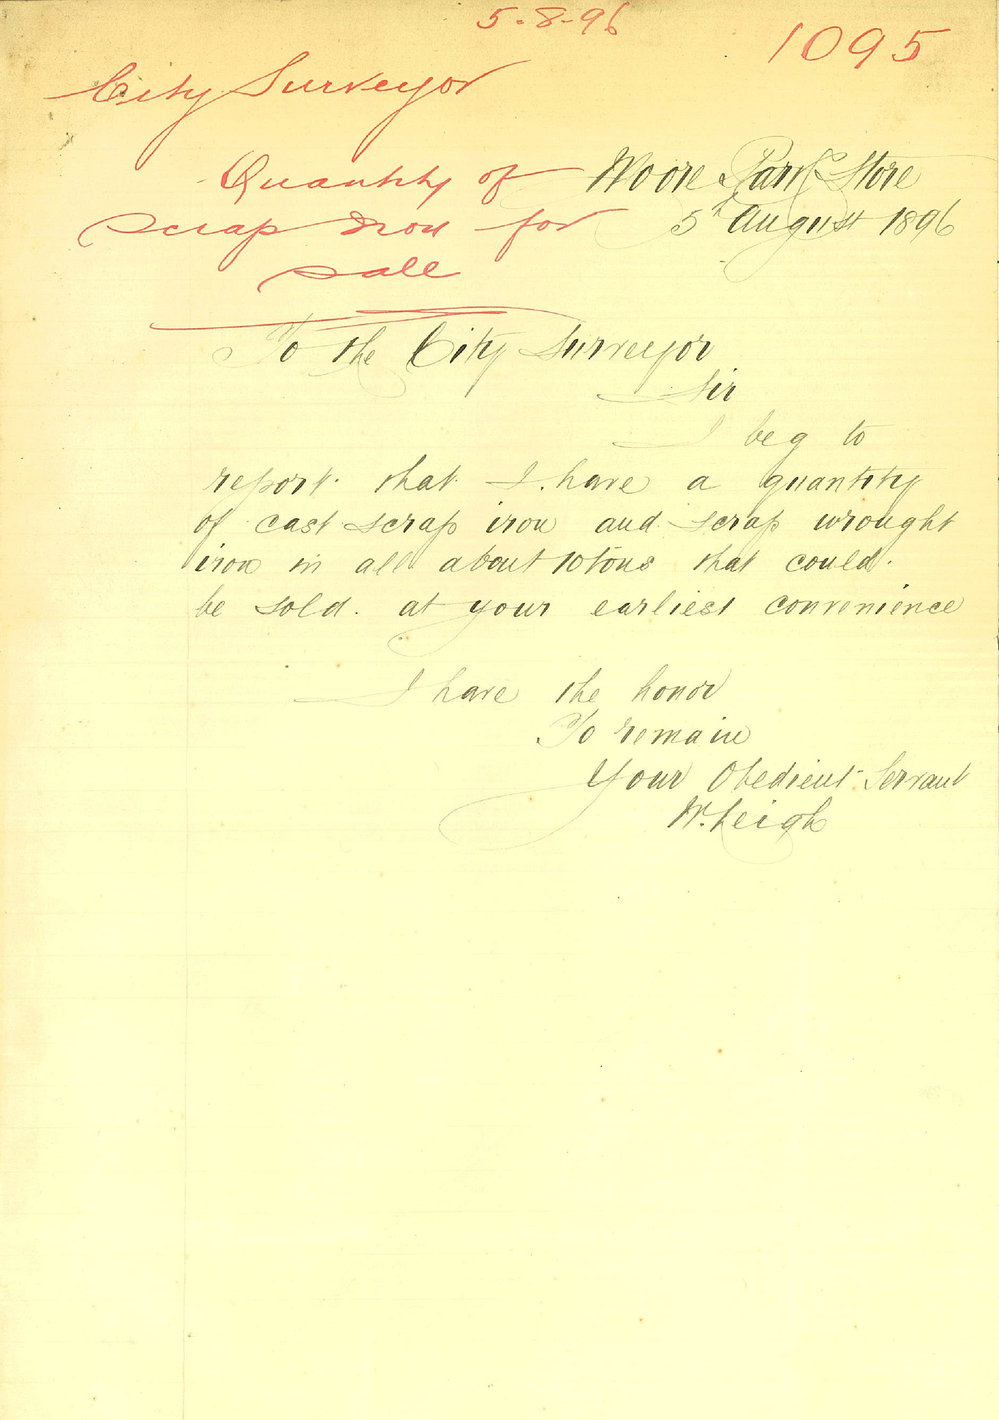 5-8-96
1095
City Surveyor
Quantity of
scrap Iron for
sale
Moore Park Store
5th August 1896
To the City Surveyor
Sir
I beg to
report that I have a quantity
of cast scrap iron and scrap wrought
iron in all about 10 tons that could
be sold. at your earliest convenience
I have the honor
To remain
Your Obedient Servant
W. Leigh